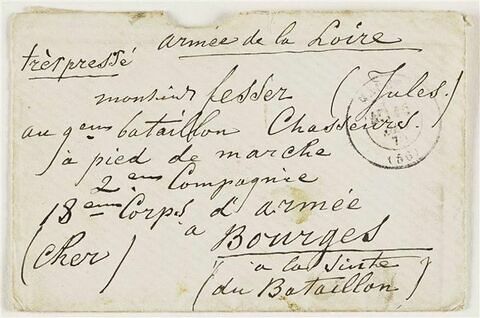 armée de la Loire
très pressé
monsieur fesser (Jules.)
au 9eme bataillon Chasseurs.
à pied de marche
2eme Compagnie
18eme Corps d'armée
à Bourges
(Cher)
à la suite
(du Bataillon)
(56)